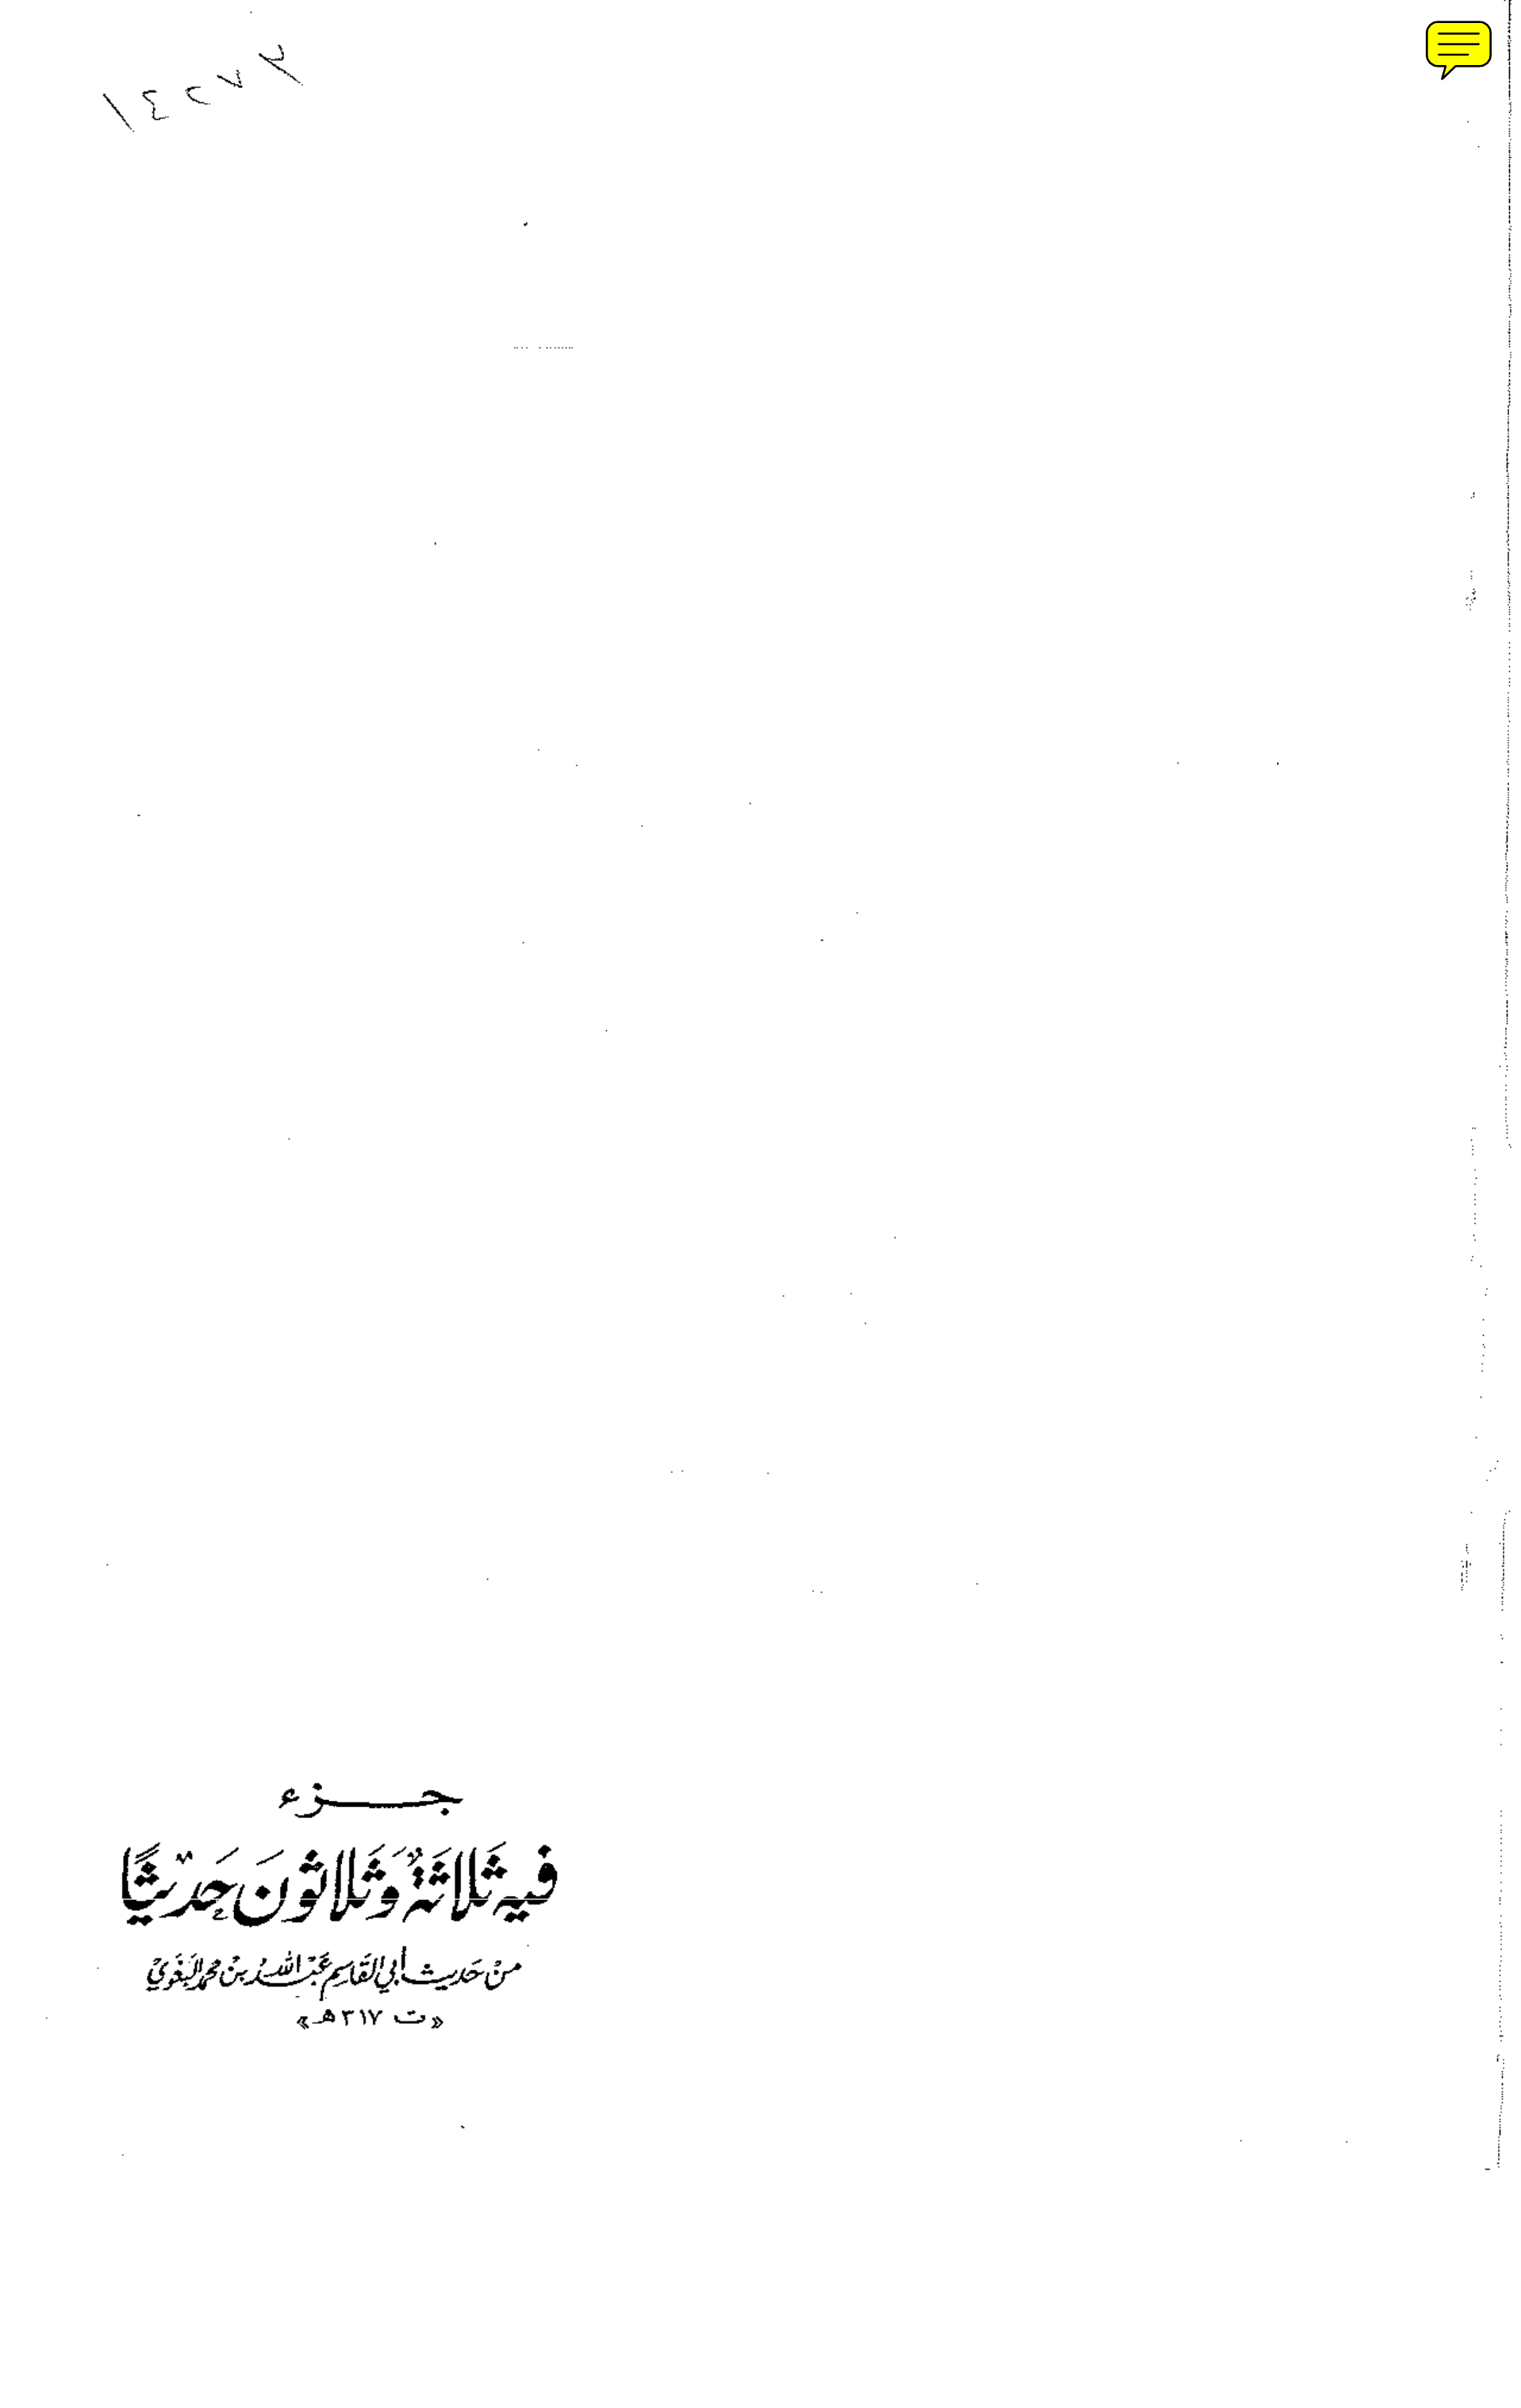 ١٤٢٧٢
جـــزء
فيه ثَلاثَةٌ وَثَلاثونَ حَدِيثًا
مِنْ حَديث أبي القَاسِم عَبْد الله بنْ محمد البَغَوِيْ
«ت ٣١٧هـ»